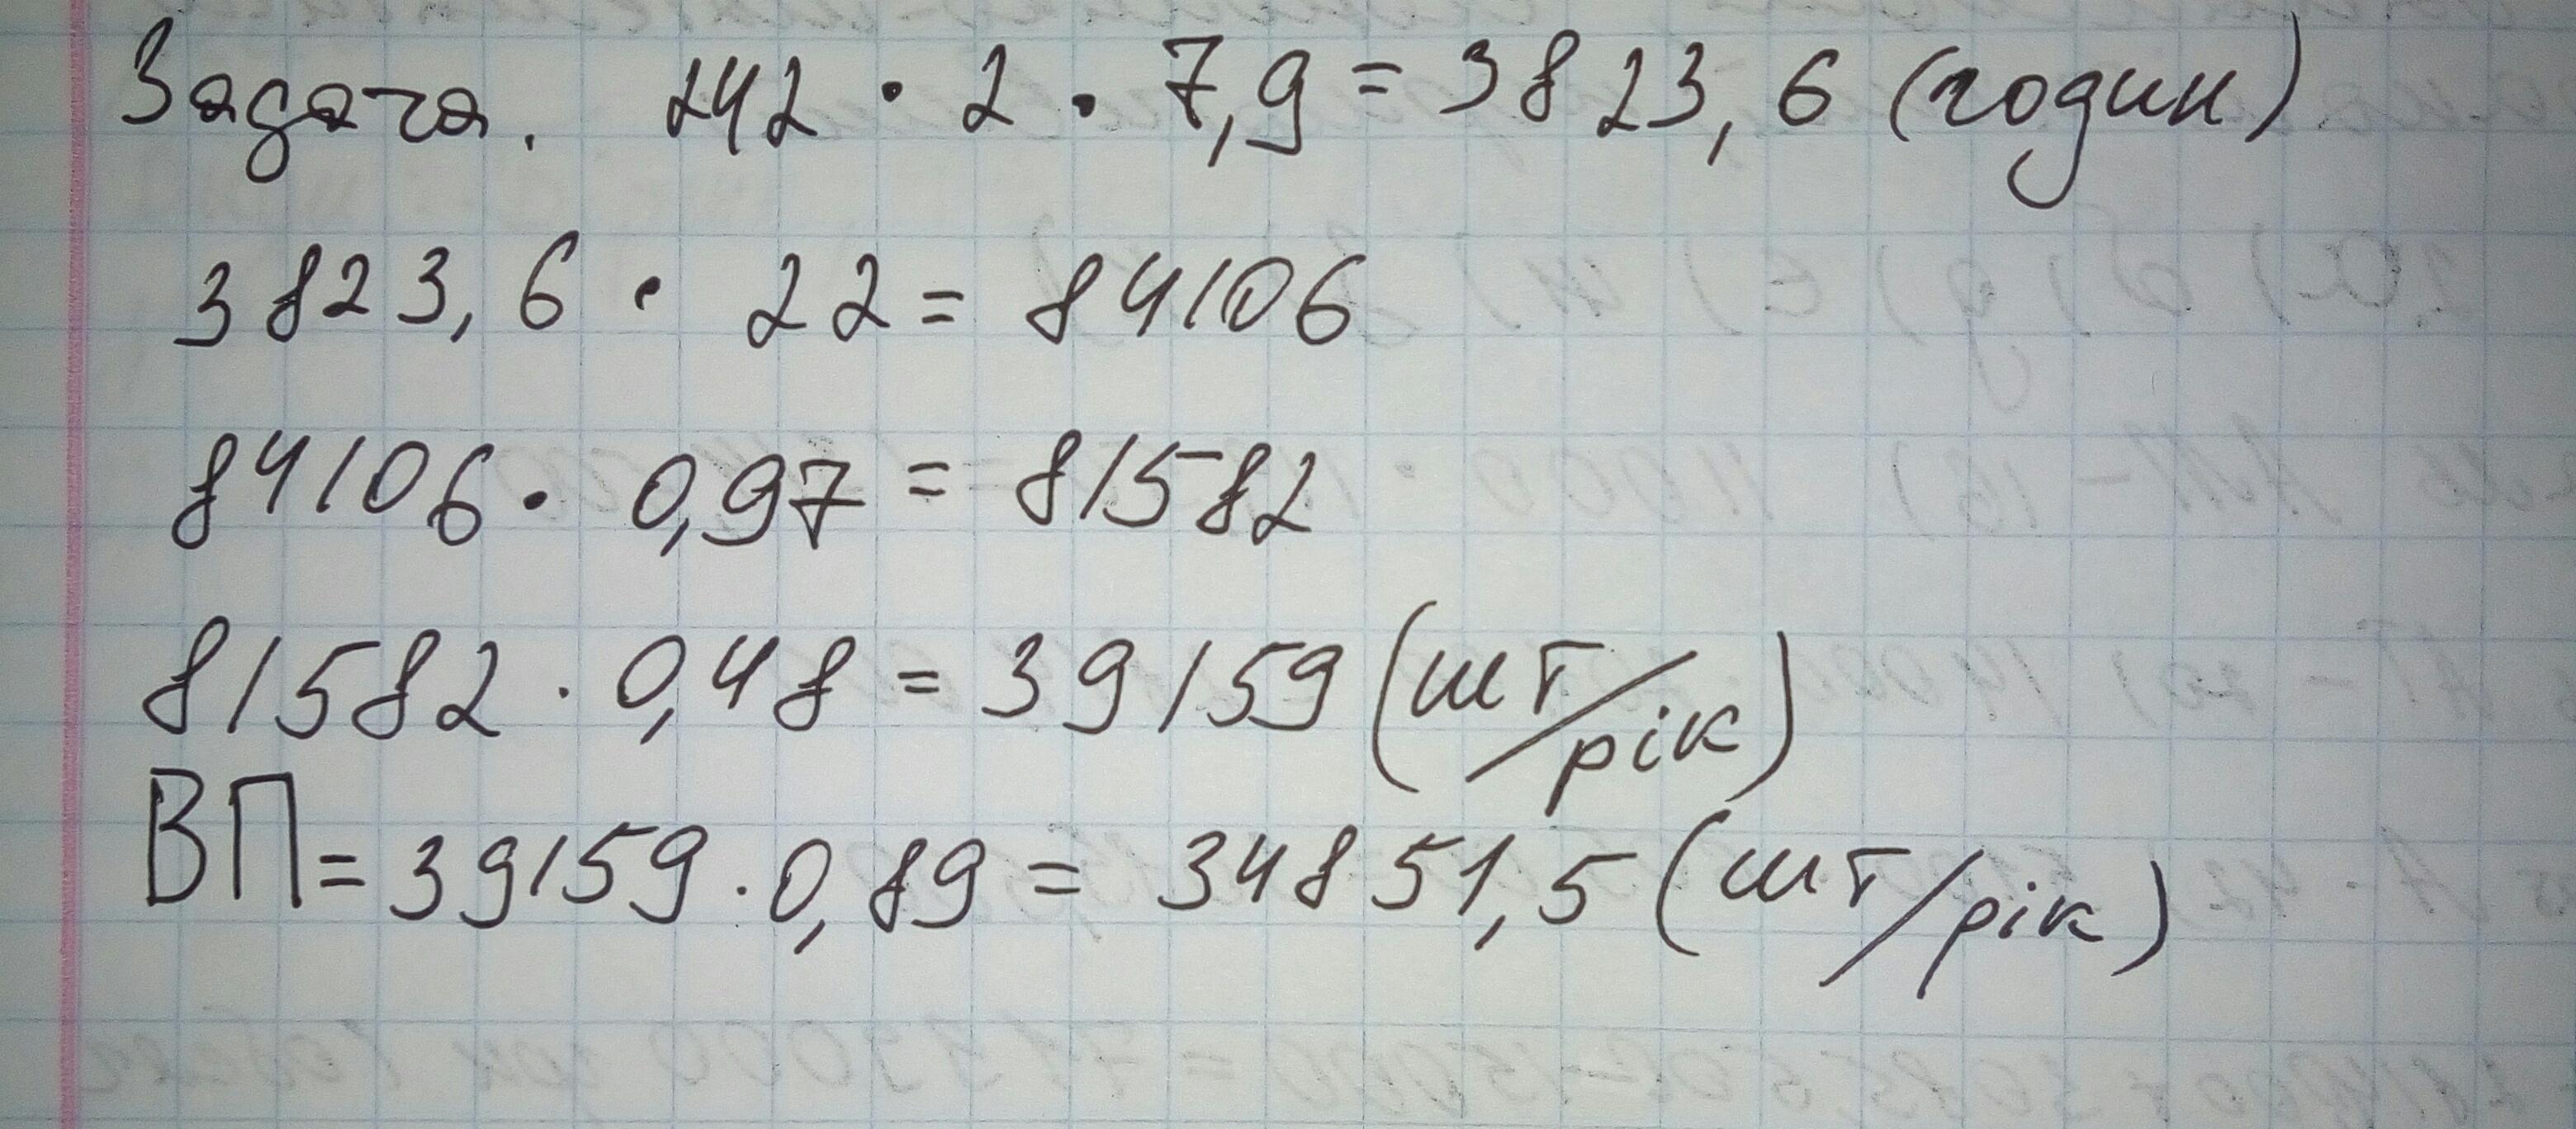 Задача. 242 · 2 · 7,9 = 3823,6 (годин)
3823,6 · 22 = 84106
84106 · 0,97 = 81582
81582 · 0,48 = 39159 (шт/рік)
ВП = 39159 · 0,89 = 34851,5 (шт/рік)